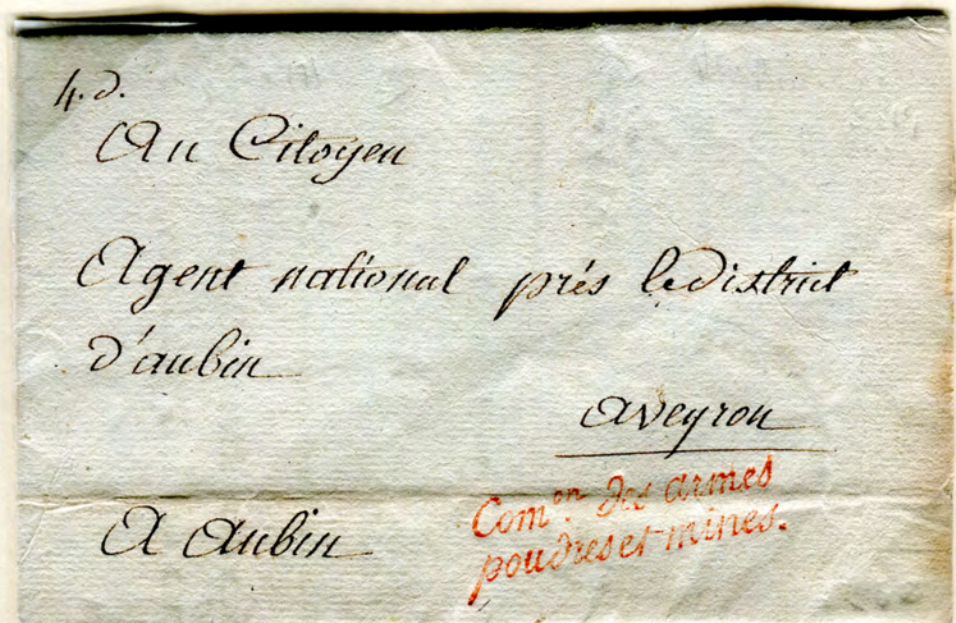 4.d.
Au Citoyen
Agent national près le District
d'aubin
aveyron
A aubin
Com.on des armes
poudres et mines.